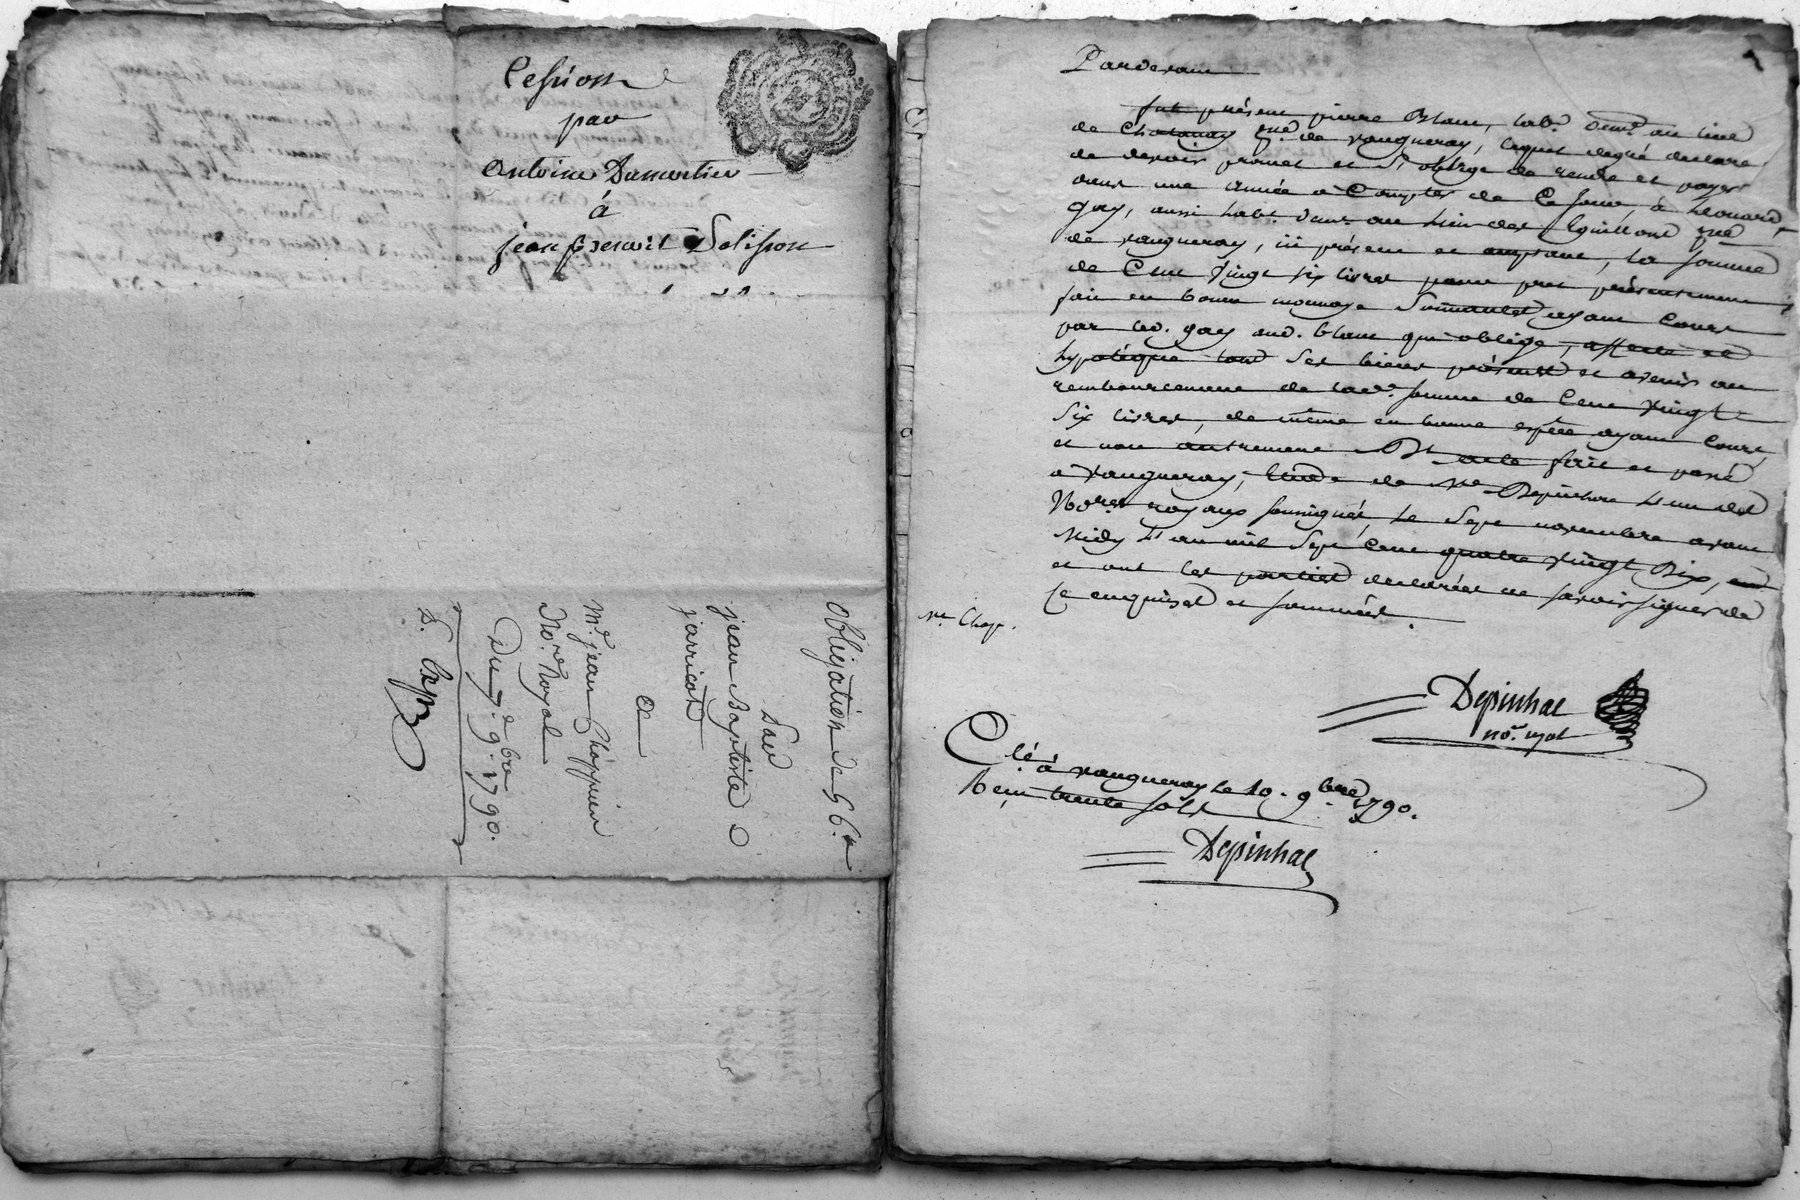 Cession
par
antoine Dumortier
á
jean Benoit Pelisson
Obligation de 96 #
Par
jean Baptiste
jarricot
a
Mr. jean Chappuis
No.re Royal
Du 7. 9.bre 1790.
Pardevant
fut présent pierre Blanc, lab.r dem.t au lieu
de Chatanay p.sse de vaugneray, lequel degré declare
de devoir promet et s'oblige de rendre et payer
dans une année a Compter de Ce jour, à Léonard
gay, aussi hab.t dem.t au lieu des Eguillons p.sse
de vaugneray, ici présent et acceptant, la somme
de Cent vingt six livres pour pret présentement
fait en bonne monnoye Sonnante ayant Cours
par led. gay aud. blanc qui oblige, affecte et
hypotéque tous ses biens présents et avenir au
remboursement de lad.e somme de Cent vingt
six livres, de même en bonne espéce ayant Cours,
et non autrement Dt acte fait et passé
a vaugneray, Etude de Me Depinhac L'un des
No.res royaux soussignés, Le Sept novembre avant
Midy L'an mil Sept Cent quatre vingt Dix, et
et ont les parties declarées ne savoir signer de
Ce enquises et sommées.
Me Chap.
Depinhac
no.re royal
C.lé à vaugneray Le 19. 9.bre 1790.
Reçu trente sols
Depinhac